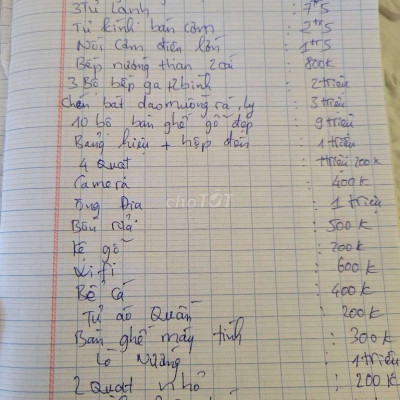 3 Tủ Lạnh : 7tr5
Tủ kính bán cơm : 2tr5
Nồi cơm điện lớn : 1tr5
Bếp nướng than 2 cái : 800k
3 Bộ bếp ga + 2 bình : 2 triệu
chén bát dao muỗng rá, ly : 3 triệu
10 bộ bàn ghế gỗ đẹp : 9 triệu
Bảng hiệu + hộp đèn : 1 triệu
4 Quạt : 1 triệu 200k
Camera : 400k
Ông Địa : 1 triệu
Bồn rửa : 500k
Kệ gỗ : 200k
Wifi : 600k
Bể Cá : 400k
Tủ áo Quần : 200k
Bàn ghế máy tính : 300k
Lò Nướng : 1 triệu
2 Quạt : 200k
chợTỐT